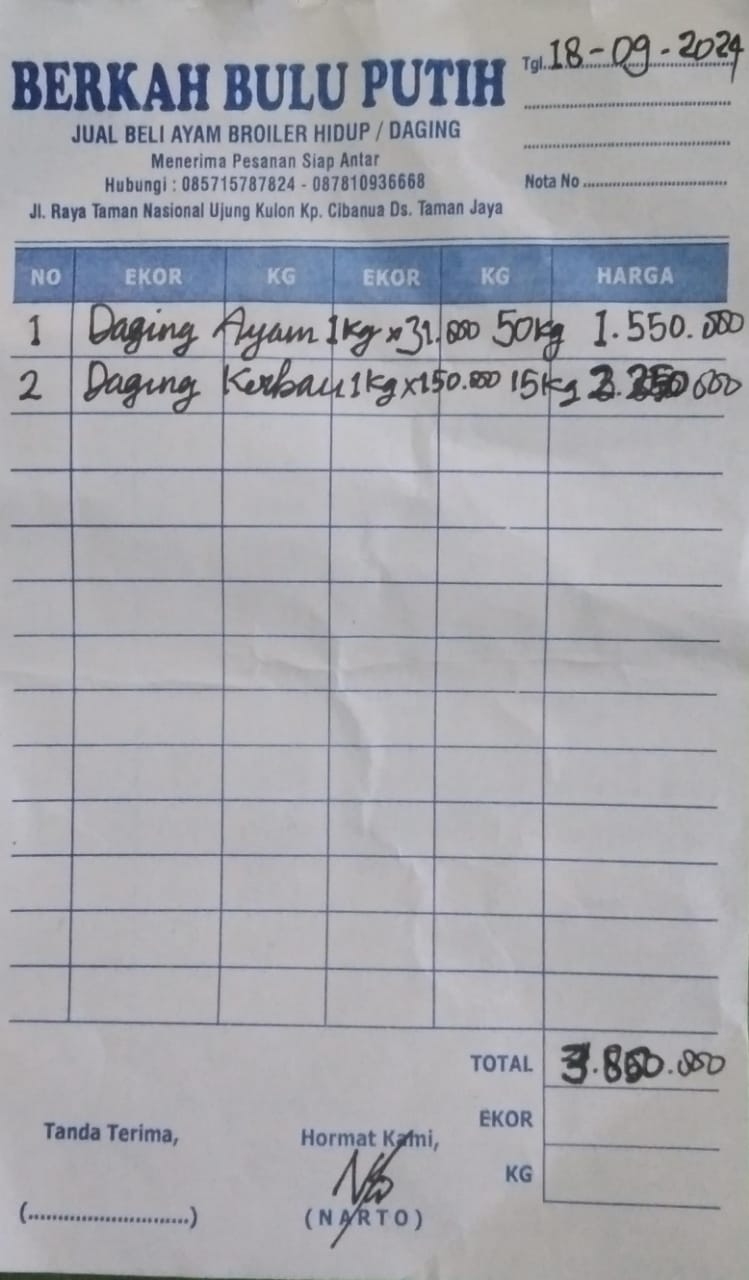 BERKAH BULU PUTIH
JUAL BELI AYAM BROILER HIDUP / DAGING
Menerima Pesanan Siap Antar
Hubungi : 085715787824 - 087810936668
Jl. Raya Taman Nasional Ujung Kulon Kp. Cibanua Ds. Taman Jaya
Tgl. 18-09-2024
Nota No
NO EKOR KG EKOR KG HARGA
1 Daging Ayam 1kg x 31.000 50kg 1.550.000
2 Daging Kerbau 1kg x 150.000 15kg 2.250 000
TOTAL 3.800.000
EKOR
KG
Tanda Terima,
Hormat Kami,
(..........................)
(NARTO)